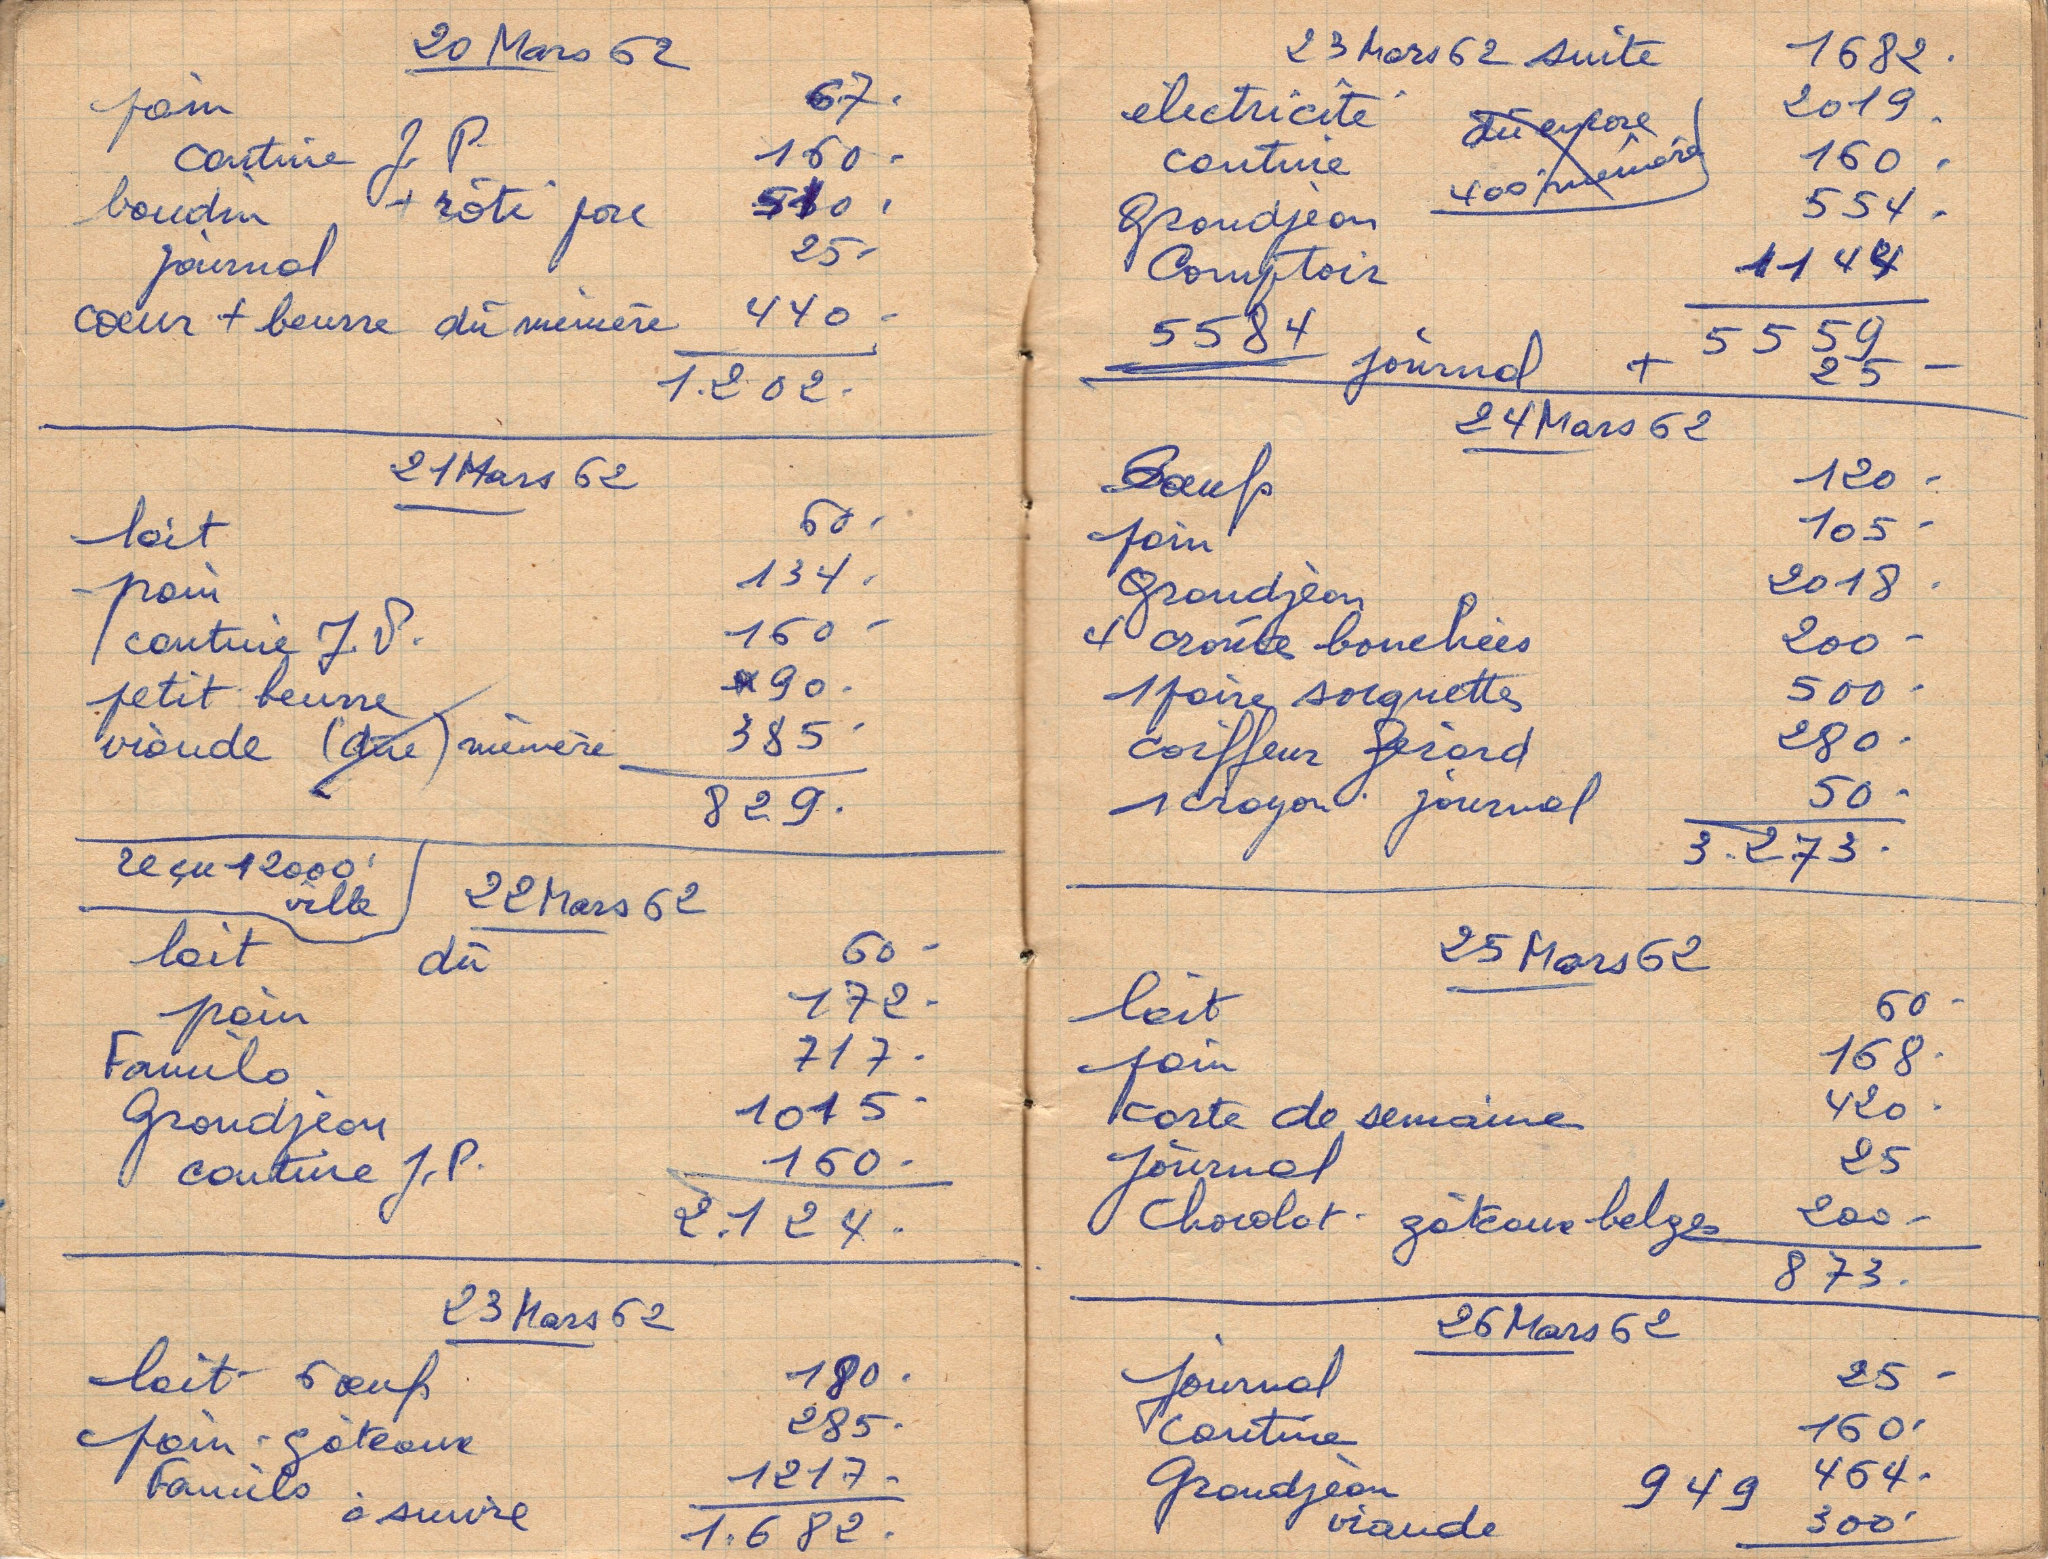 20 Mars 62
pain 67.
cantine J. P. 160.
boudin + rôti porc 510.
journal 25.
cœur + beurre dû mémère 440.
1.202.
21 Mars 62
lait 60.
pain 134.
cantine J. P. 160.
petit beurre 90.
viande (due) mémère 385.
829.
reçu 12000
ville
22 Mars 62
lait dû 60.
pain 172.
Familo 717.
Grandjean 1015.
cantine J. P. 160.
2.124.
23 Mars 62
lait 6 œufs 180.
pain - gâteaux 285.
Familo 1217.
à suivre 1.682.
23 Mars 62 suite 1682.
électricité 2019.
dû encore
cantine 160.
400 mémère
Grandjean 554.
Comptoir 1144
5584 5559
journal + 25 -
24 Mars 62
œufs 120.
pain 105.
Grandjean 2018.
4 croûtes bouchées 200.
1 paire socquettes 500.
coiffeur Gérard 280.
1 crayon. journal 50.
3.273.
25 Mars 62
lait 60.
pain 168.
carte de semaine 420.
Journal 25
Chocolat - gâteaux belges 200.
873.
26 Mars 62
journal 25 -
cantine 160.
Grandjean 949 464.
viande 300